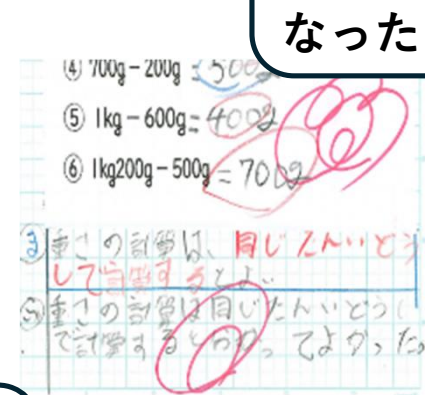 なった
④ 700g－200g = 500g
⑤ 1kg－600g= 400g
⑥ 1kg200g－500g = 700g
ま 重さの計算は、同じたんいどう
しで計算するとよい。
ふ 重さの計算は同じたんいどうし
で計算するとわかってよかった